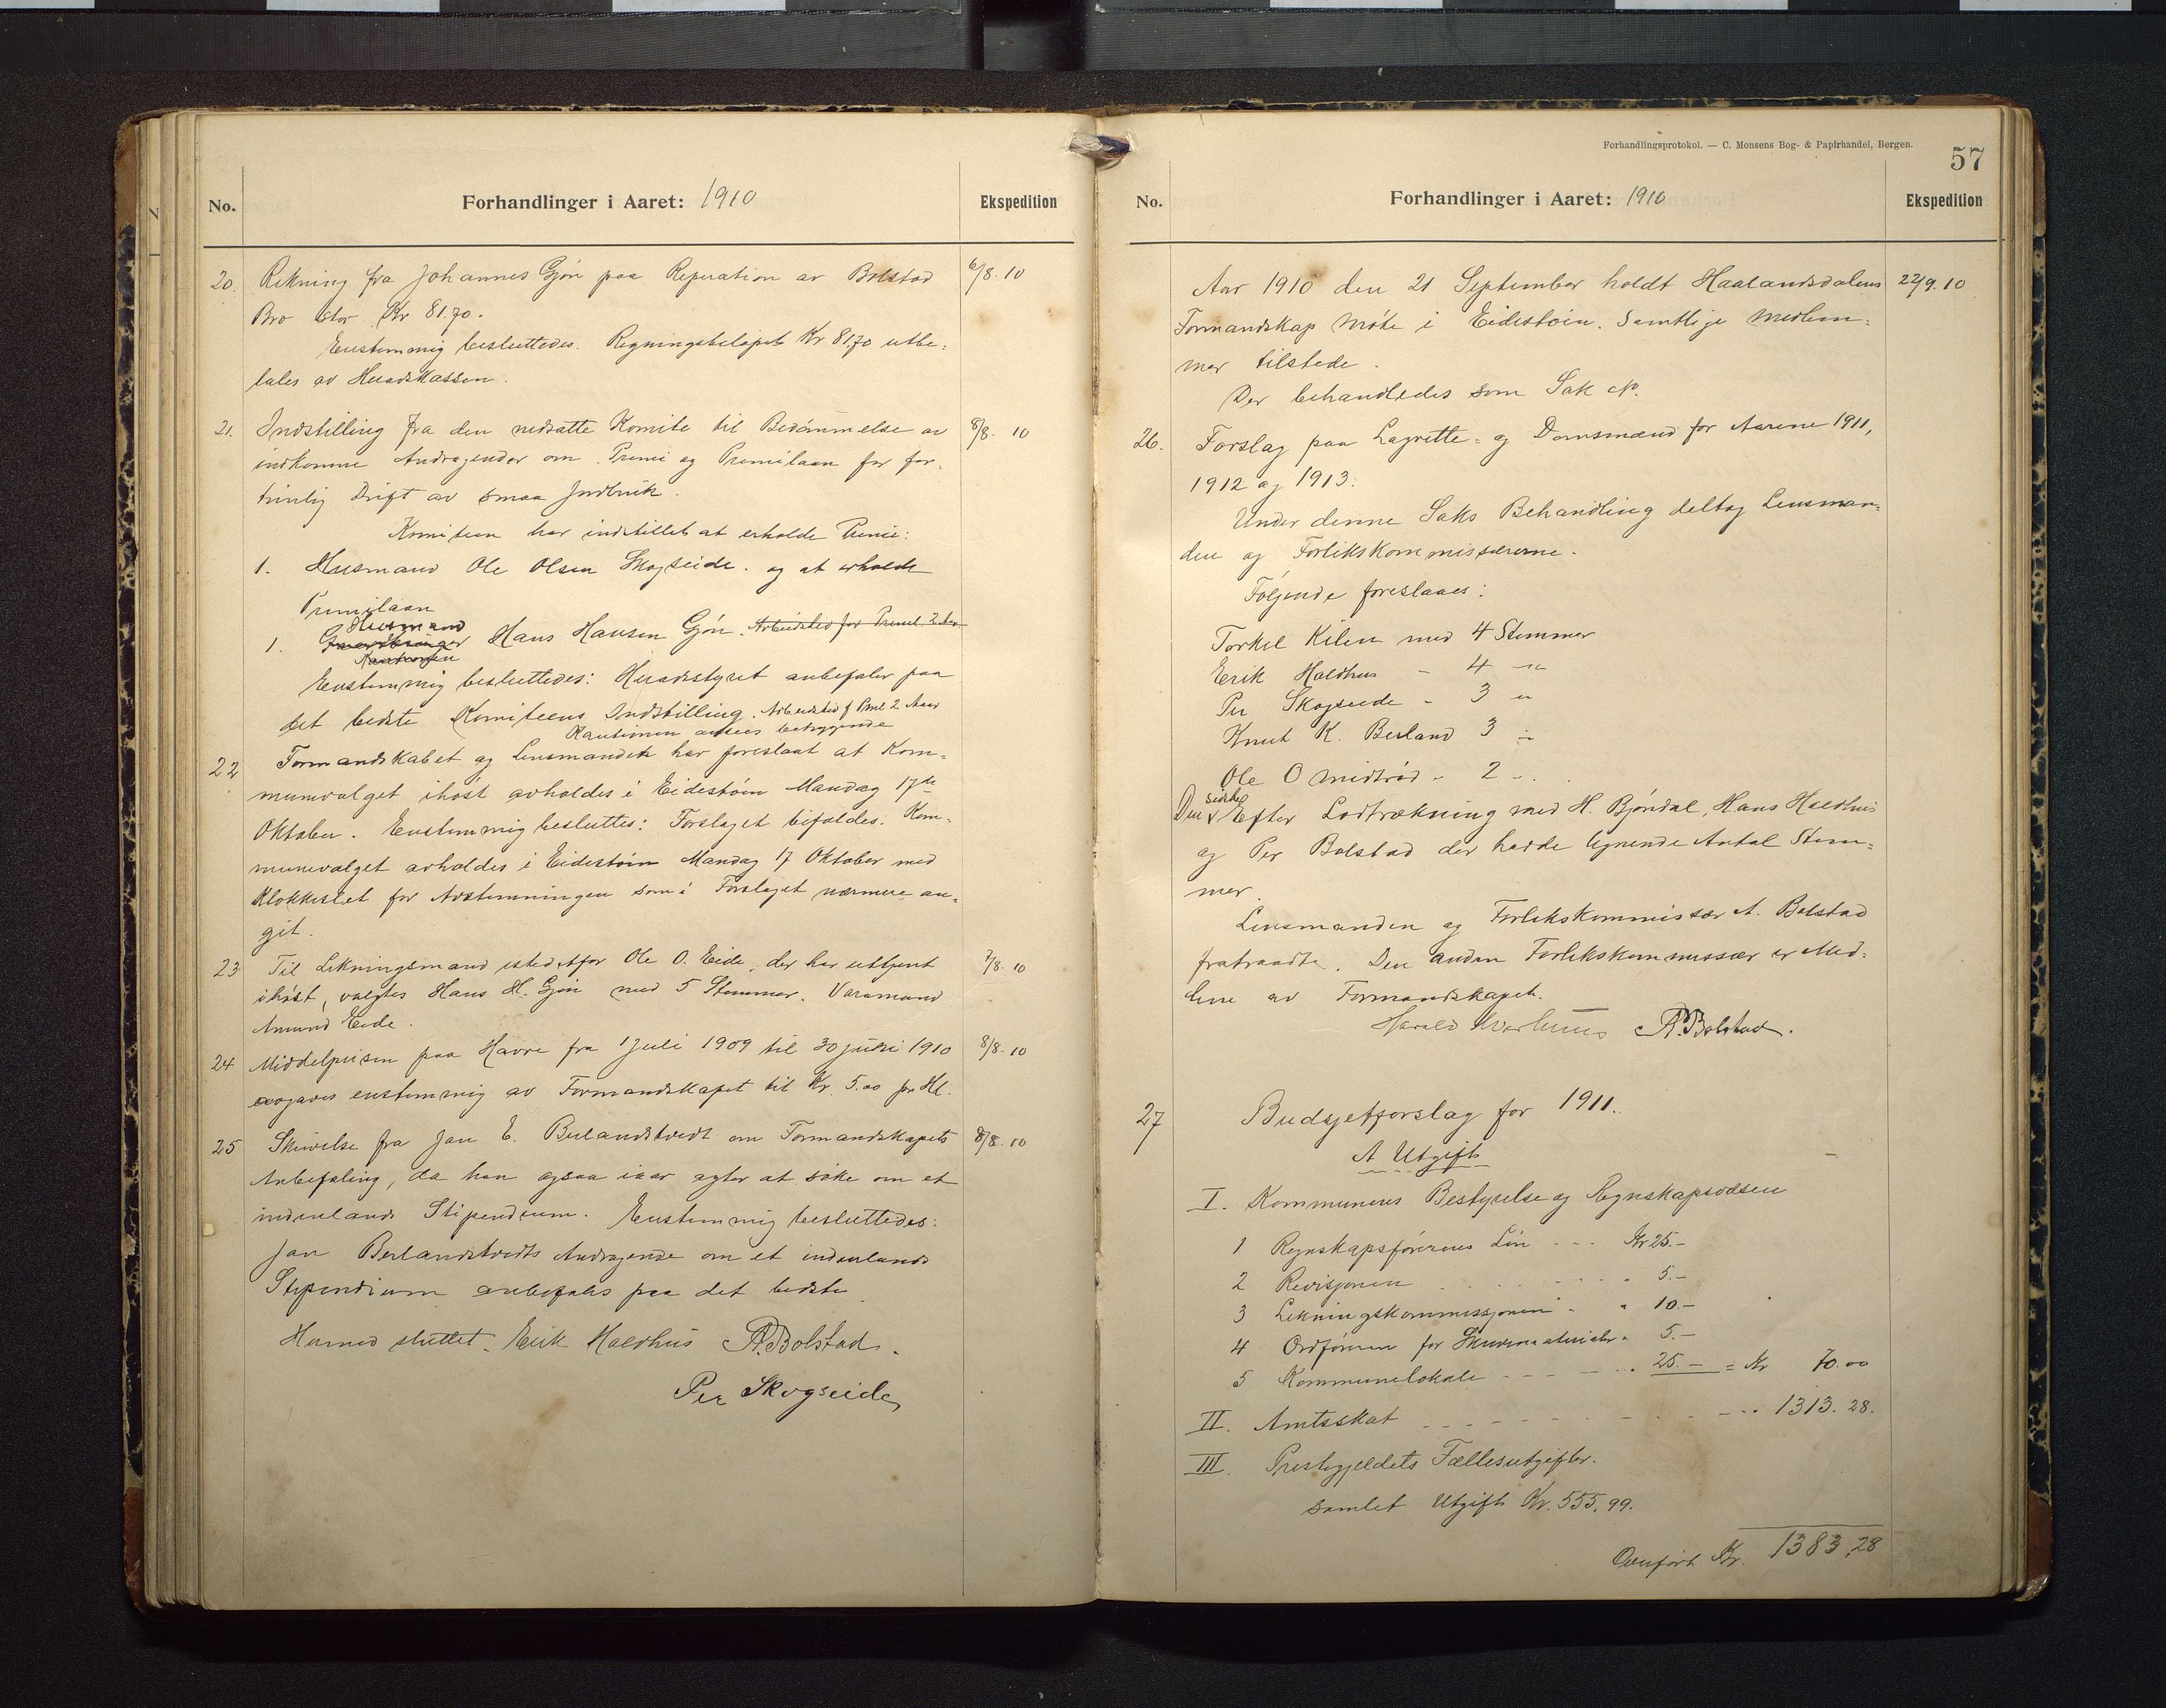 No.
Forhandlinger i Aaret: 1910
Ekspedition
20. Rekning fra Johannes Gjøn paa Reperation av Bolstad 6/8. 10
Bro stor Kr 81.70.
Enstemmig besluttedes. Regningsbeløpet Kr 81.70 utbe-
tales av Heradskassen.
21. Indstilling fra den nedsatte Komite til Bedømmelse av 8/8. 10
indkomne Andragender om Premie og Premielaan for for-
trinlig Drift av smaa Jordbruk.
Komiteen har indstillet at erholde Premie:
1. Husmand Ole Olsen Skogseide. og at erholde
Premilaan
Husmand
1. Hans Hansen Gjøn. Arbeidsted for Premil 2 Aar
Enstemmig besluttedes: Heradsstyret anbefaler paa
det bedste Komiteens Indstilling. Arbeidsted f Pml 2 Aar
Kautionen ansees betryggende
22 Formandskabet og Lensmanden har foreslaat at Kom-
munevalget ihøst avholdes i Eidestøin Mandag 17de
Oktober. Enstemmig besluttes: Forslaget bifaldes. Kom-
munevalget avholdes i Eidestøin Mandag 17 Oktober med
Klokkeslet for Avstemningen som i Forslaget nærmere an-
git.
23 Til Likningsmand istedetfor Ole O. Eide, der har uttjent 7/8. 10
ihøst, valgtes Hans H. Gjøn med 5 Stemmer. Varamand
Amund Eide.
24 Middelprisen paa Havre fra 1 Juli 1909 til 30 Juni 1910 8/8. 10
avgaves enstemmig av Formandskapet til Kr. 5.00 pr Hl.
25 Skrivelse fra Jan E. Berlandstvedt om Formandskapets 8/8. 10
Anbefaling, da han ogsaa iaar agter at søke om et
indenlands Stipendium. Enstemmig besluttedes:
Jan Berlandstvedts Andragende om et indenlands
Stipendium anbefales paa det bedste
Hermed sluttet. Erik Holdhus A. Bolstad.
Per Skogseide
Forhandlingsprotokol. — C. Monsens Bog- & Papirhandel, Bergen.
57
No.
Forhandlinger i Aaret: 1910
Ekspedition
Aar 1910 den 21 September holdt Haalandsdalens 22/9. 10
Formandskap Møte i Eidestøin. Samtlige Medlem-
mer tilstede.
Der behandledes som Sak No.
26. Forslag paa Lagrette- og Domsmænd for Aarene 1911,
1912 og 1913.
Under denne Saks Behandling deltog Lensman-
den og Forlikskommissærerne.
Følgende foreslaaes:
Torkel Kilen med 4 Stemmer
Erik Holdhus - 4 -"-
Per Skogseide - 3 "
Knut K. Berland 3 "
Ole O Midtrød - 2 - .
Den sidste Efter Lodtrækning med H. Bjørndal, Hans Holdhus
og Per Bolstad der hadde lignende Antal Stem-
mer.
Lensmanden og Forlikskommissær A. Bolstad
fratraadte. Den anden Forlikskommissær er Med-
lem av Formandskapet.
A. Bolstad.
27 Budsjetforslag for 1911.
A Utgift
I. Kommunens Bestyrelse og Regnskapsvæsen
1 Regnskapsførerens Løn - - - Kr 25.-
2 Revisjonen . . . . . 5.-
3 Likningskommissjonen - " 10.-
4 Ordføreren for Skrivematerialer " 5.-
5 Kommunelokale - - - - 25.- = Kr 70.00
II. Amtsskat - - - - - - 1313. 28.
III. Prestegjeldets Fællesutgifter.
samlet Utgift Kr. 555.99.
Overført Kr. 1383,28